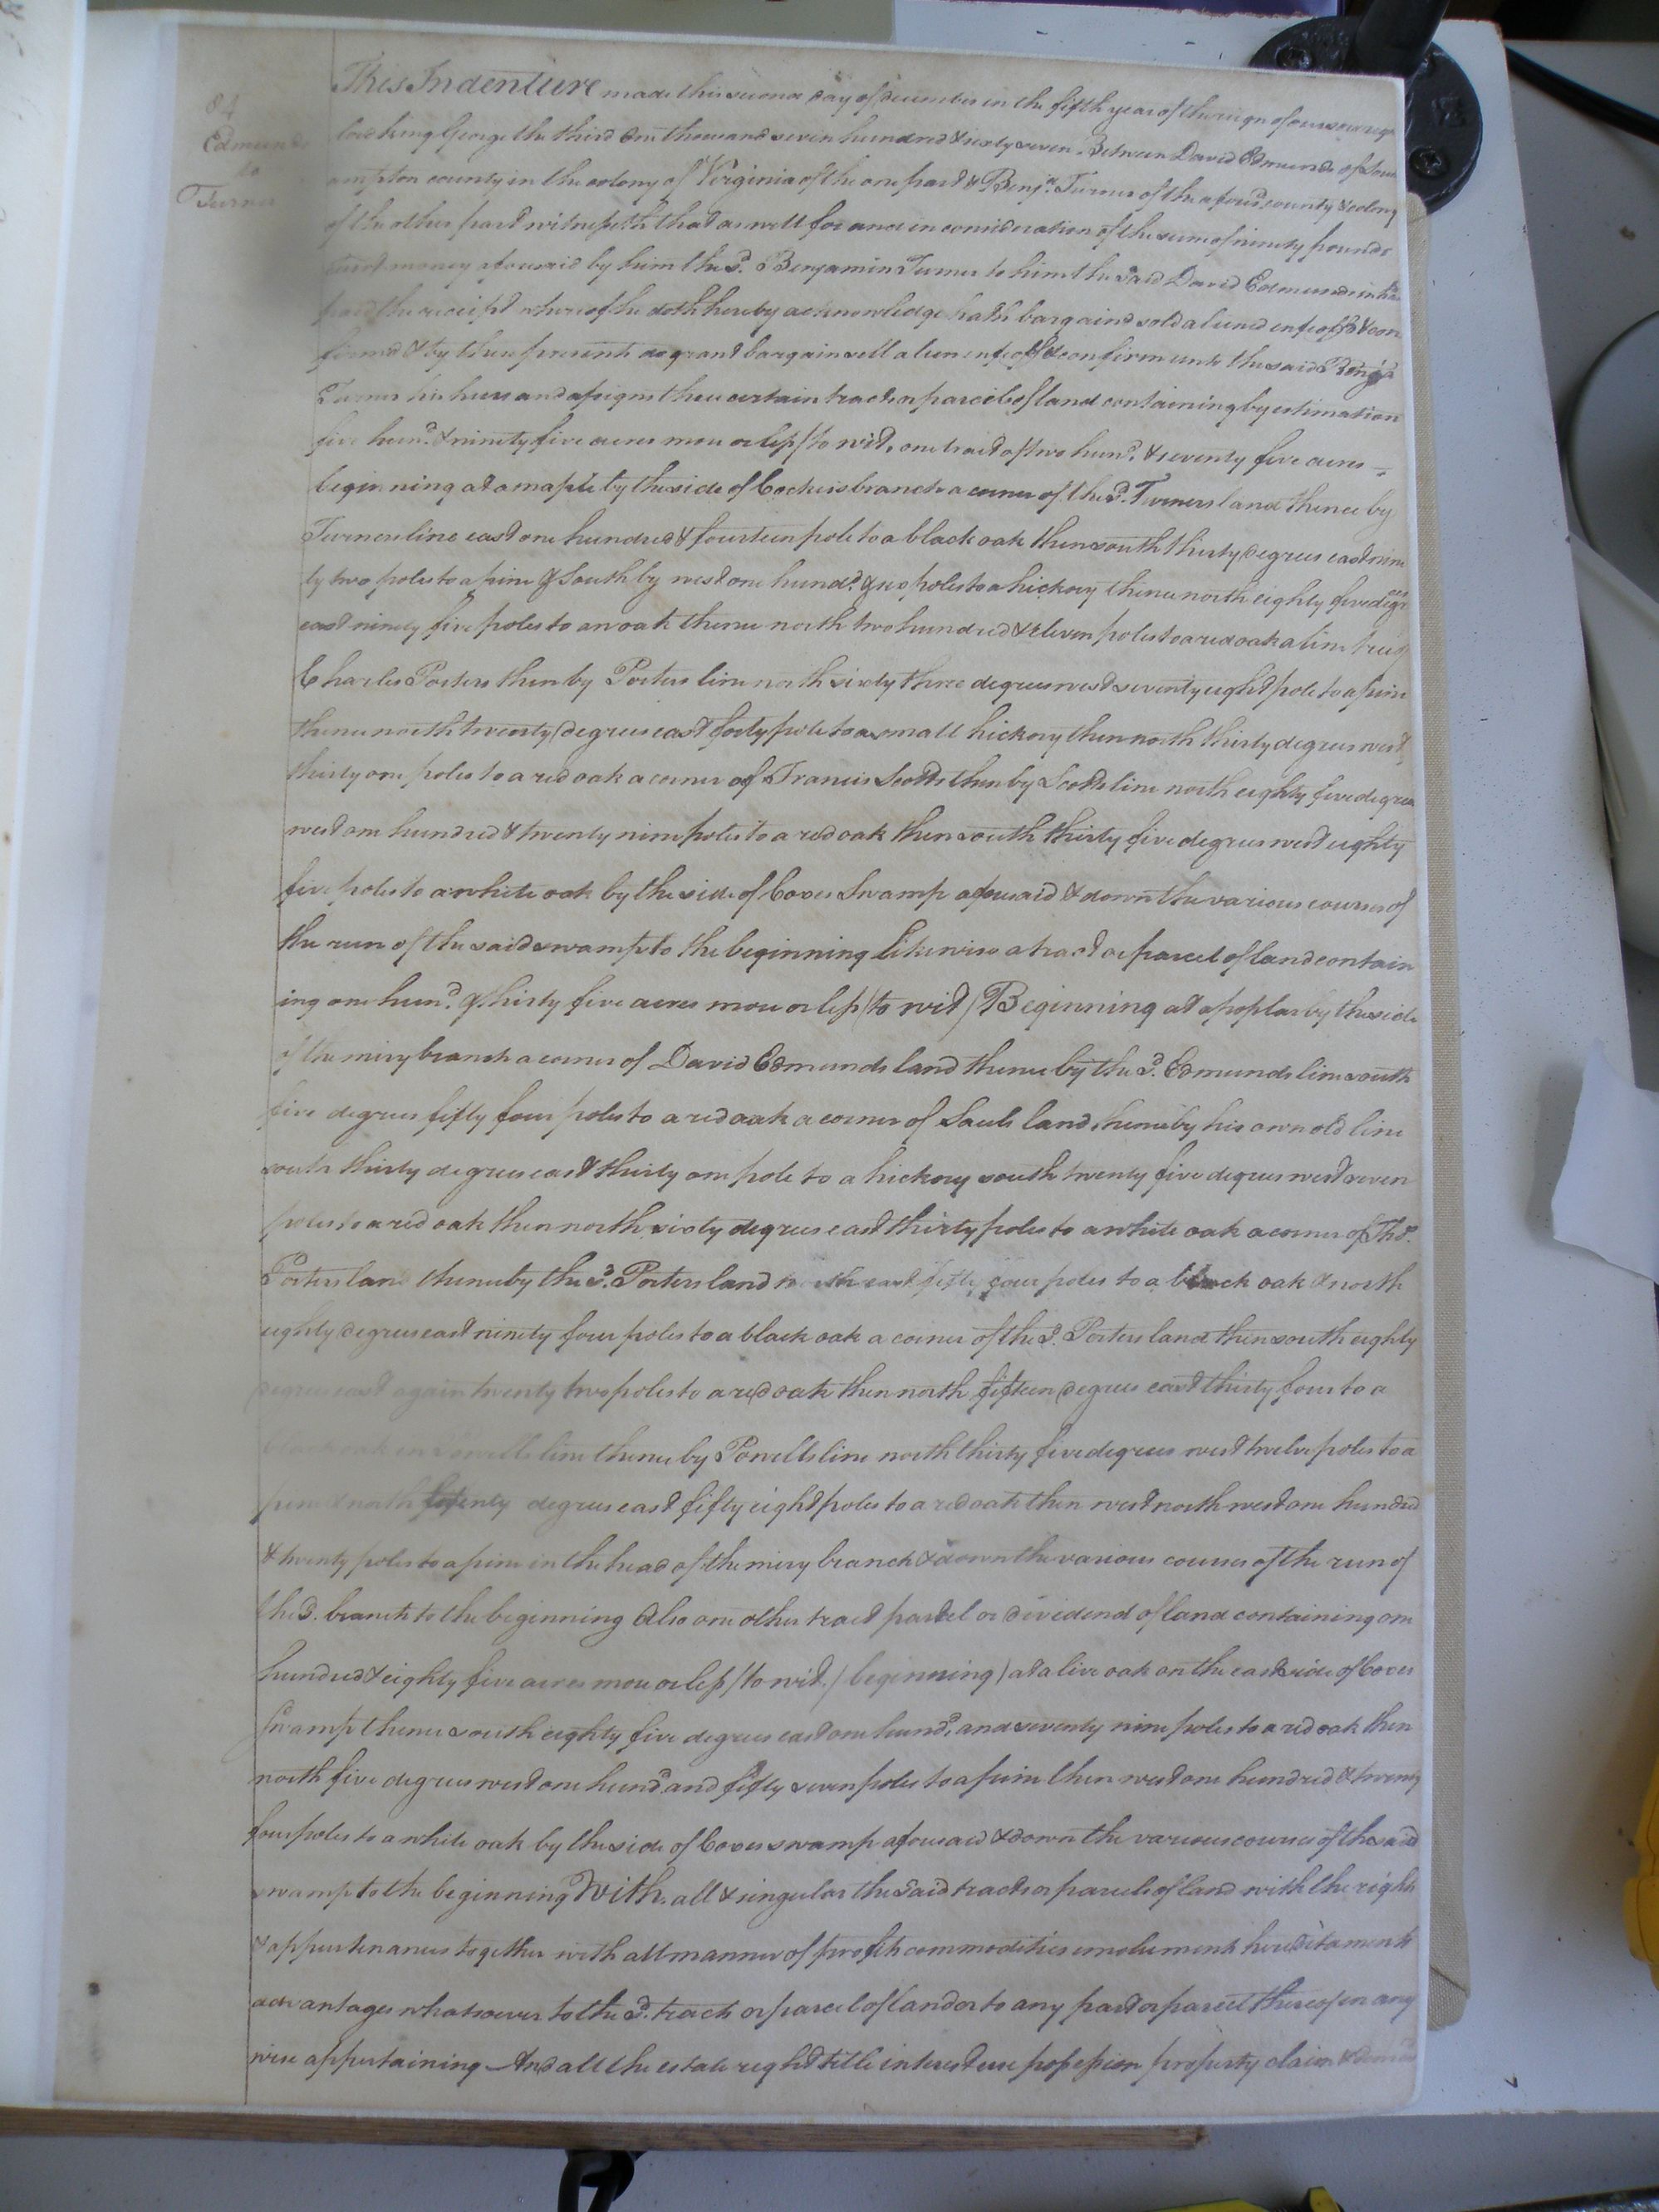 84
Edmunds
to
Turner
This Indenture made this second day of december in the fifth year of the reign of our sovereign
lord king George the third one thousand seven hundred & sixty seven Between David Edmunds of South
ampton county in the colony of Virginia of the one part & Benja. Turner of the afousd. county & colony
of the other part witnesseth that as well for and in consideration of the sum of ninety pounds
money afousaid by him the sd. Benjamin Turner to him the said David Edmunds in hand
paid the receipt whereof he doth hereby acknowledge hath bargaind sold aliened enfeoffd & con
firmd & by these presents do grant bargain sell alien enfeoff & confirm unto the said Benja.
Turner his heirs and assigns these certain tracts or parcels of land containing by estimation
five hund. & ninety five acres more or less (to wit, one tract of two hund. & seventy five acres
beginning at a maple by the side of Cockeis branch a corner of the sd. Turners land thence by
Turners line east one hundred & fourteen pole to a black oak then south thirty degrees east nine
ty two poles to a pine & South by west one hundd. & poles to a hickory thence north eighty five degrs
east ninety five poles to an oak thence north two hundred & eleven poles to a red oak a line tree of
Charles Porters then by Porters line north sixty three degrees west seventy eight pole to a pine
thence north twenty degrees east forty pole to a small hickory then north thirty degrees west
thirty one poles to a red oak a corner of Francis Scotts then by Scotts line north eighty five degrees
west one hundred & twenty nine poles to a red oak then south thirty five degrees west eighty
five poles to a white oak by the side of Coxes Swamp afousaid & down the various courses of
the run of the said swamp to the beginning Likewise a tract or parcel of land contain
ing one hund. & thirty five acres more or less (to wit) Beginning at a poplar by the side
of the miry branch a corner of David Edmunds land thence by the sd. Edmunds line south
five degrees fifty four poles to a red oak a corner of Sauls land thence by his own old line
south thirty degrees east thirty one pole to a hickory south twenty five degrees west seven
poles to a red oak then north sixty degrees east thirty poles to a white oak a corner of Thos.
Porters land thence by the sd. Porters land north east fifty four poles to a black oak & north
eighty degrees east ninety four poles to a black oak a corner of the sd. Porters land then south eighty
degrees east again twenty two poles to a red oak then north fifteen degrees east thirty four to a
oak in Powells line thence by Powells line north thirty five degrees west twelve poles to a
pine & north degrees east fifty eight poles to a red oak then west north west one hundred
& twenty poles to a pine in the head of the miry branch & down the various courses of the run of
the sd. branch to the beginning Also one other tract parcel or dividend of land containing one
hundred & eighty five acres more or less (to wit) beginning) at a live oak on the east side of Coxes
Swamp thence south eighty five degrees east one hund. and seventy nine poles to a red oak then
north five degrees west one hund. and fifty seven poles to a pine then west one hundred & twenty
four poles to a white oak by the side of Coxes swamp afousaid & down the various courses of the said
swamp to the beginning With. all & singular the said tracts or parcels of land with the rights
& appurtenances together with all manner of profits commodities emoluments hereditaments
advantages whatsoever to the sd. tracts or parcel of land or to any part or parcel thereof in any
wise appertaining And all the estate right title interest use possession property claim & demand